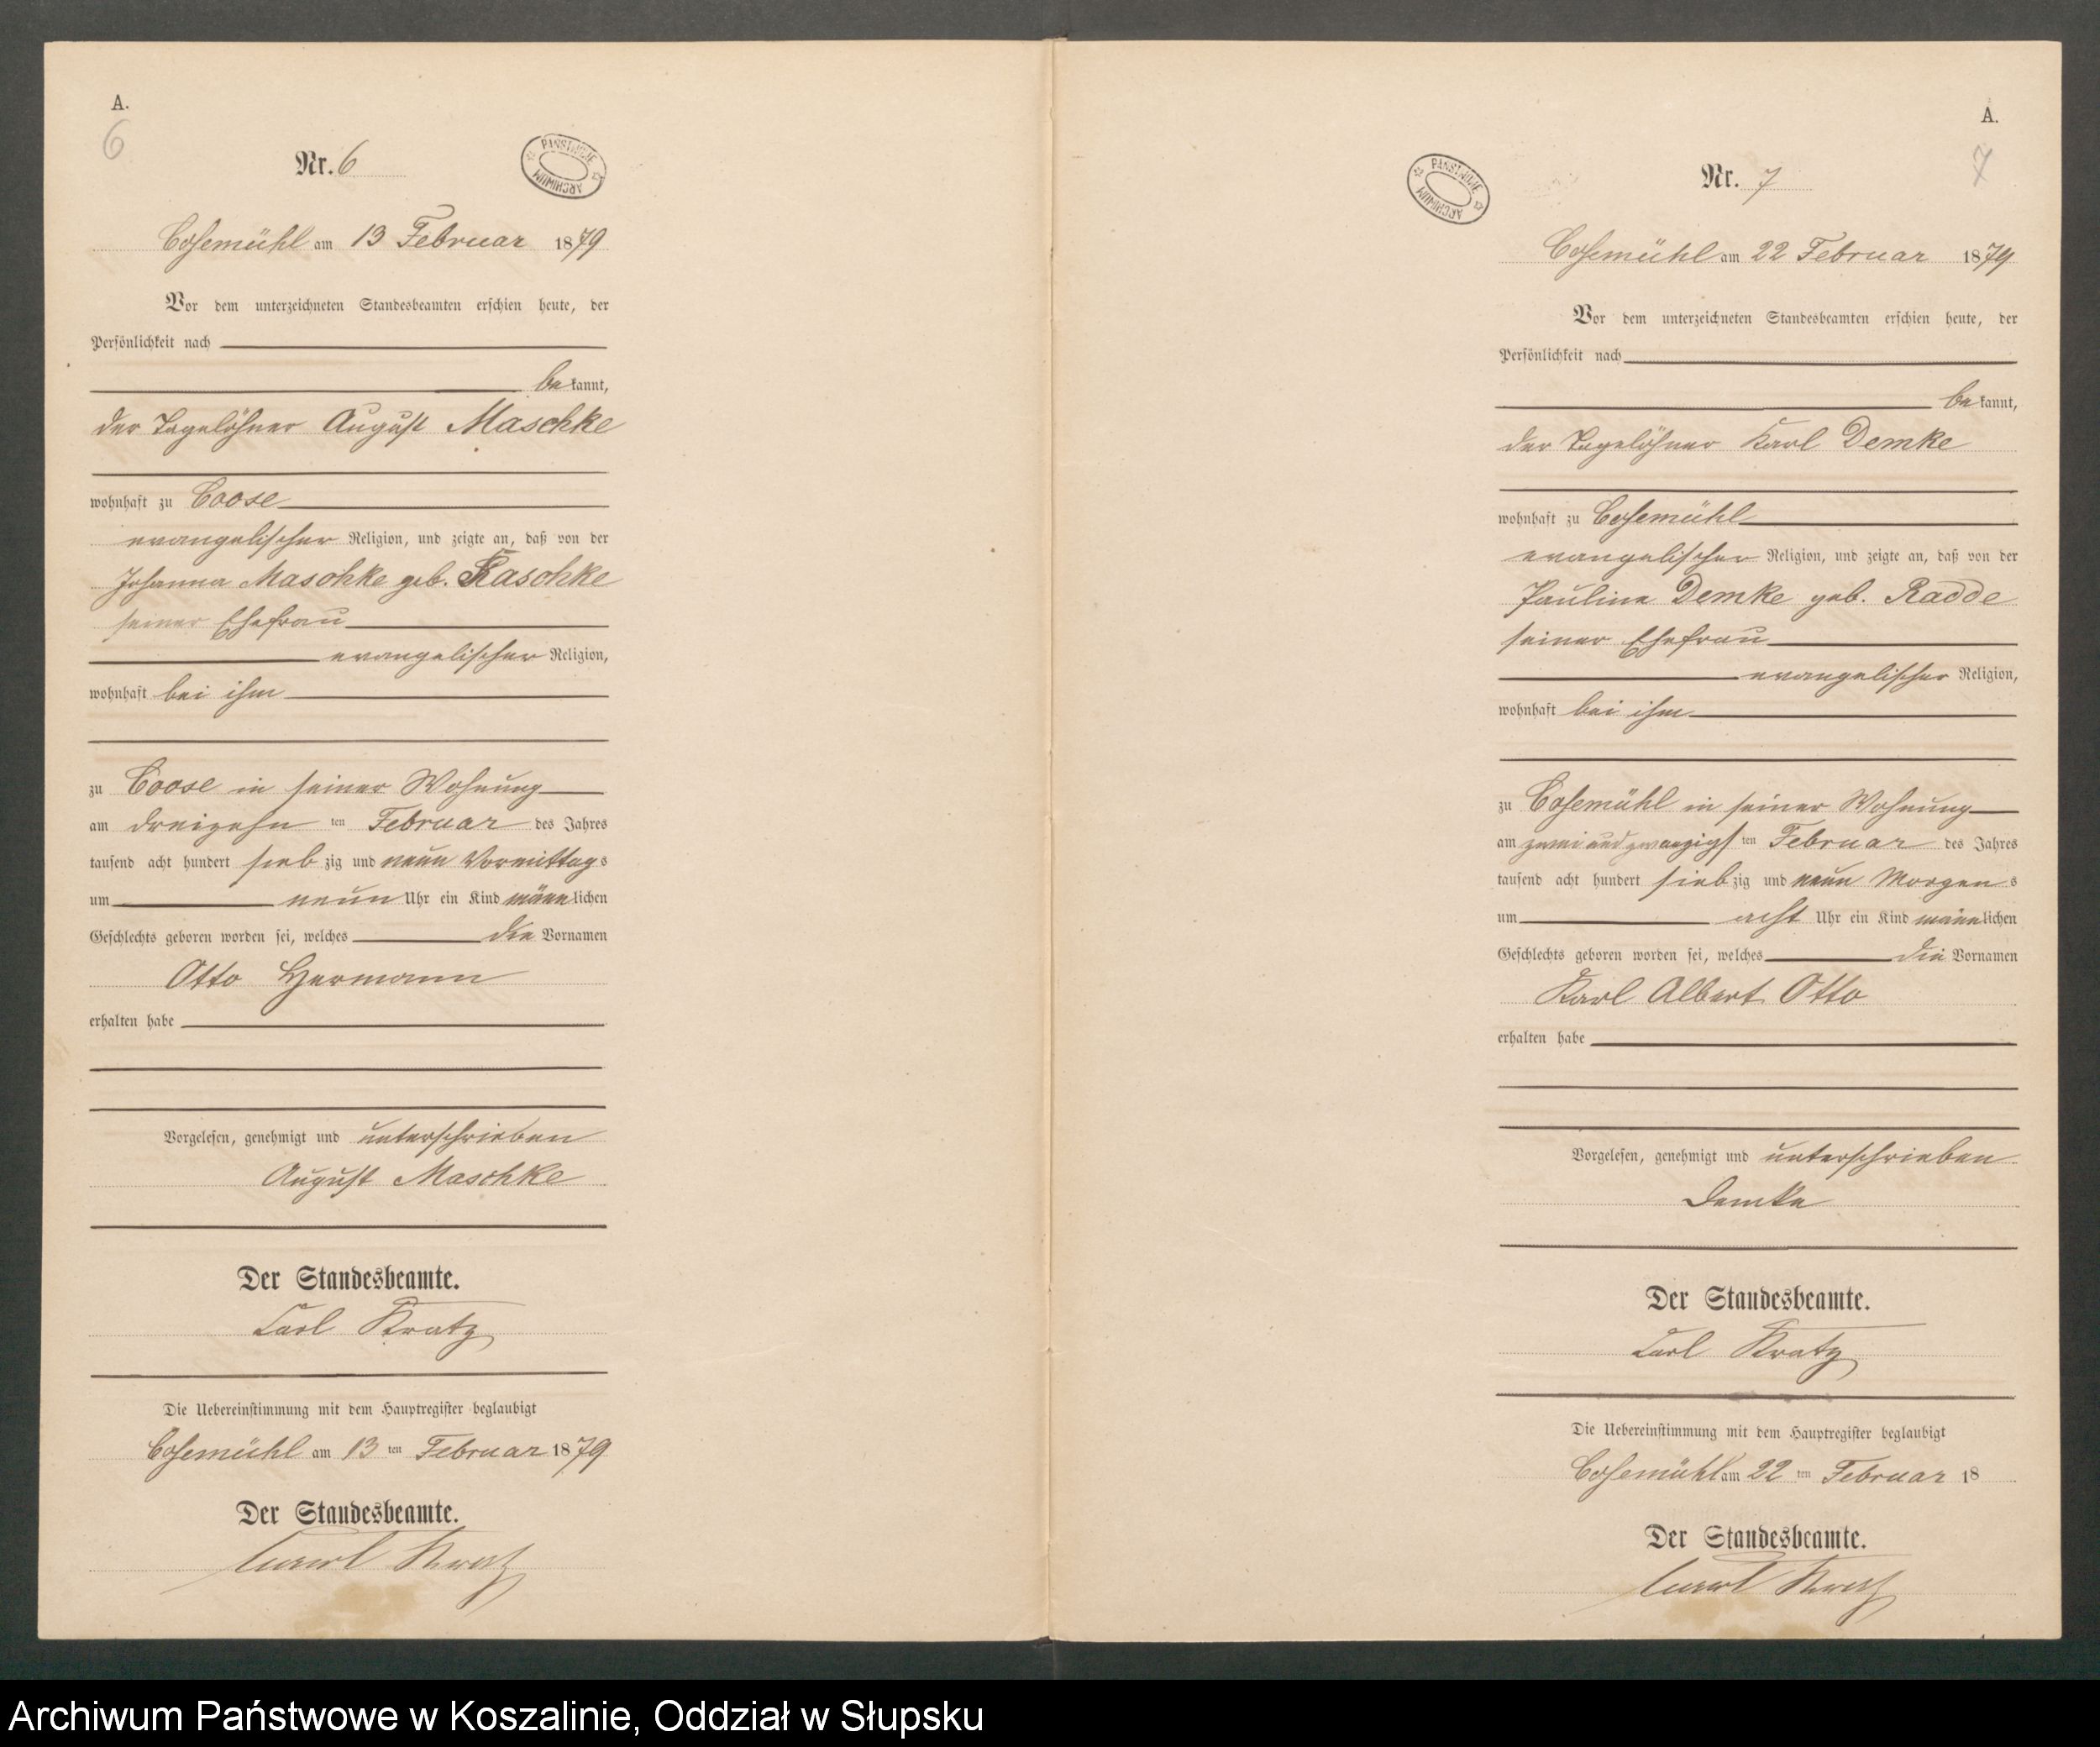 A.
6
Nr. 6
PAŃSTWOWE ARCHIWUM
Cosemühl am 13 Februar 1879
Vor dem unterzeichneten Standesbeamten erschien heute, der
Persönlichkeit nach
bekannt,
der Tagelöhner August Maschke
wohnhaft zu Coose
evangelischer Religion, und zeigte an, daß von der
Johanna Maschke geb. Raschke
seiner Ehefrau
evangelischer Religion,
wohnhaft bei ihm
zu Coose in seiner Wohnung
am dreizehn ten Februar des Jahres
tausend acht hundert siebzig und neun Vormittags
um neun Uhr ein Kind männlichen
Geschlechts geboren worden sei, welches die Vornamen
Otto Hermann
erhalten habe
Vorgelesen, genehmigt und unterschrieben
August Maschke
Der Standesbeamte.
Carl Kratz
Die Uebereinstimmung mit dem Hauptregister beglaubigt
Cosemühl am 13 ten Februar 1879
Der Standesbeamte.
Carl Kratz
A.
7
Nr. 7
PAŃSTWOWE ARCHIWUM
Cosemühl am 22 Februar 1879
Vor dem unterzeichneten Standesbeamten erschien heute, der
Persönlichkeit nach
bekannt,
der Tagelöhner Karl Demke
wohnhaft zu Cosemühl
evangelischer Religion, und zeigte an, daß von der
Pauline Demke geb. Radde
seiner Ehefrau
evangelischer Religion,
wohnhaft bei ihm
zu Cosemühl in seiner Wohnung
am zwei und zwanzigsten Februar des Jahres
tausend acht hundert siebzig und neun Morgens
um acht Uhr ein Kind männlichen
Geschlechts geboren worden sei, welches die Vornamen
Karl Albert Otto
erhalten habe
Vorgelesen, genehmigt und unterschrieben
Demke
Der Standesbeamte.
Carl Kratz
Die Uebereinstimmung mit dem Hauptregister beglaubigt
Cosemühl am 22 ten Februar 18
Der Standesbeamte.
Carl Kratz
Archiwum Państwowe w Koszalinie, Oddział w Słupsku